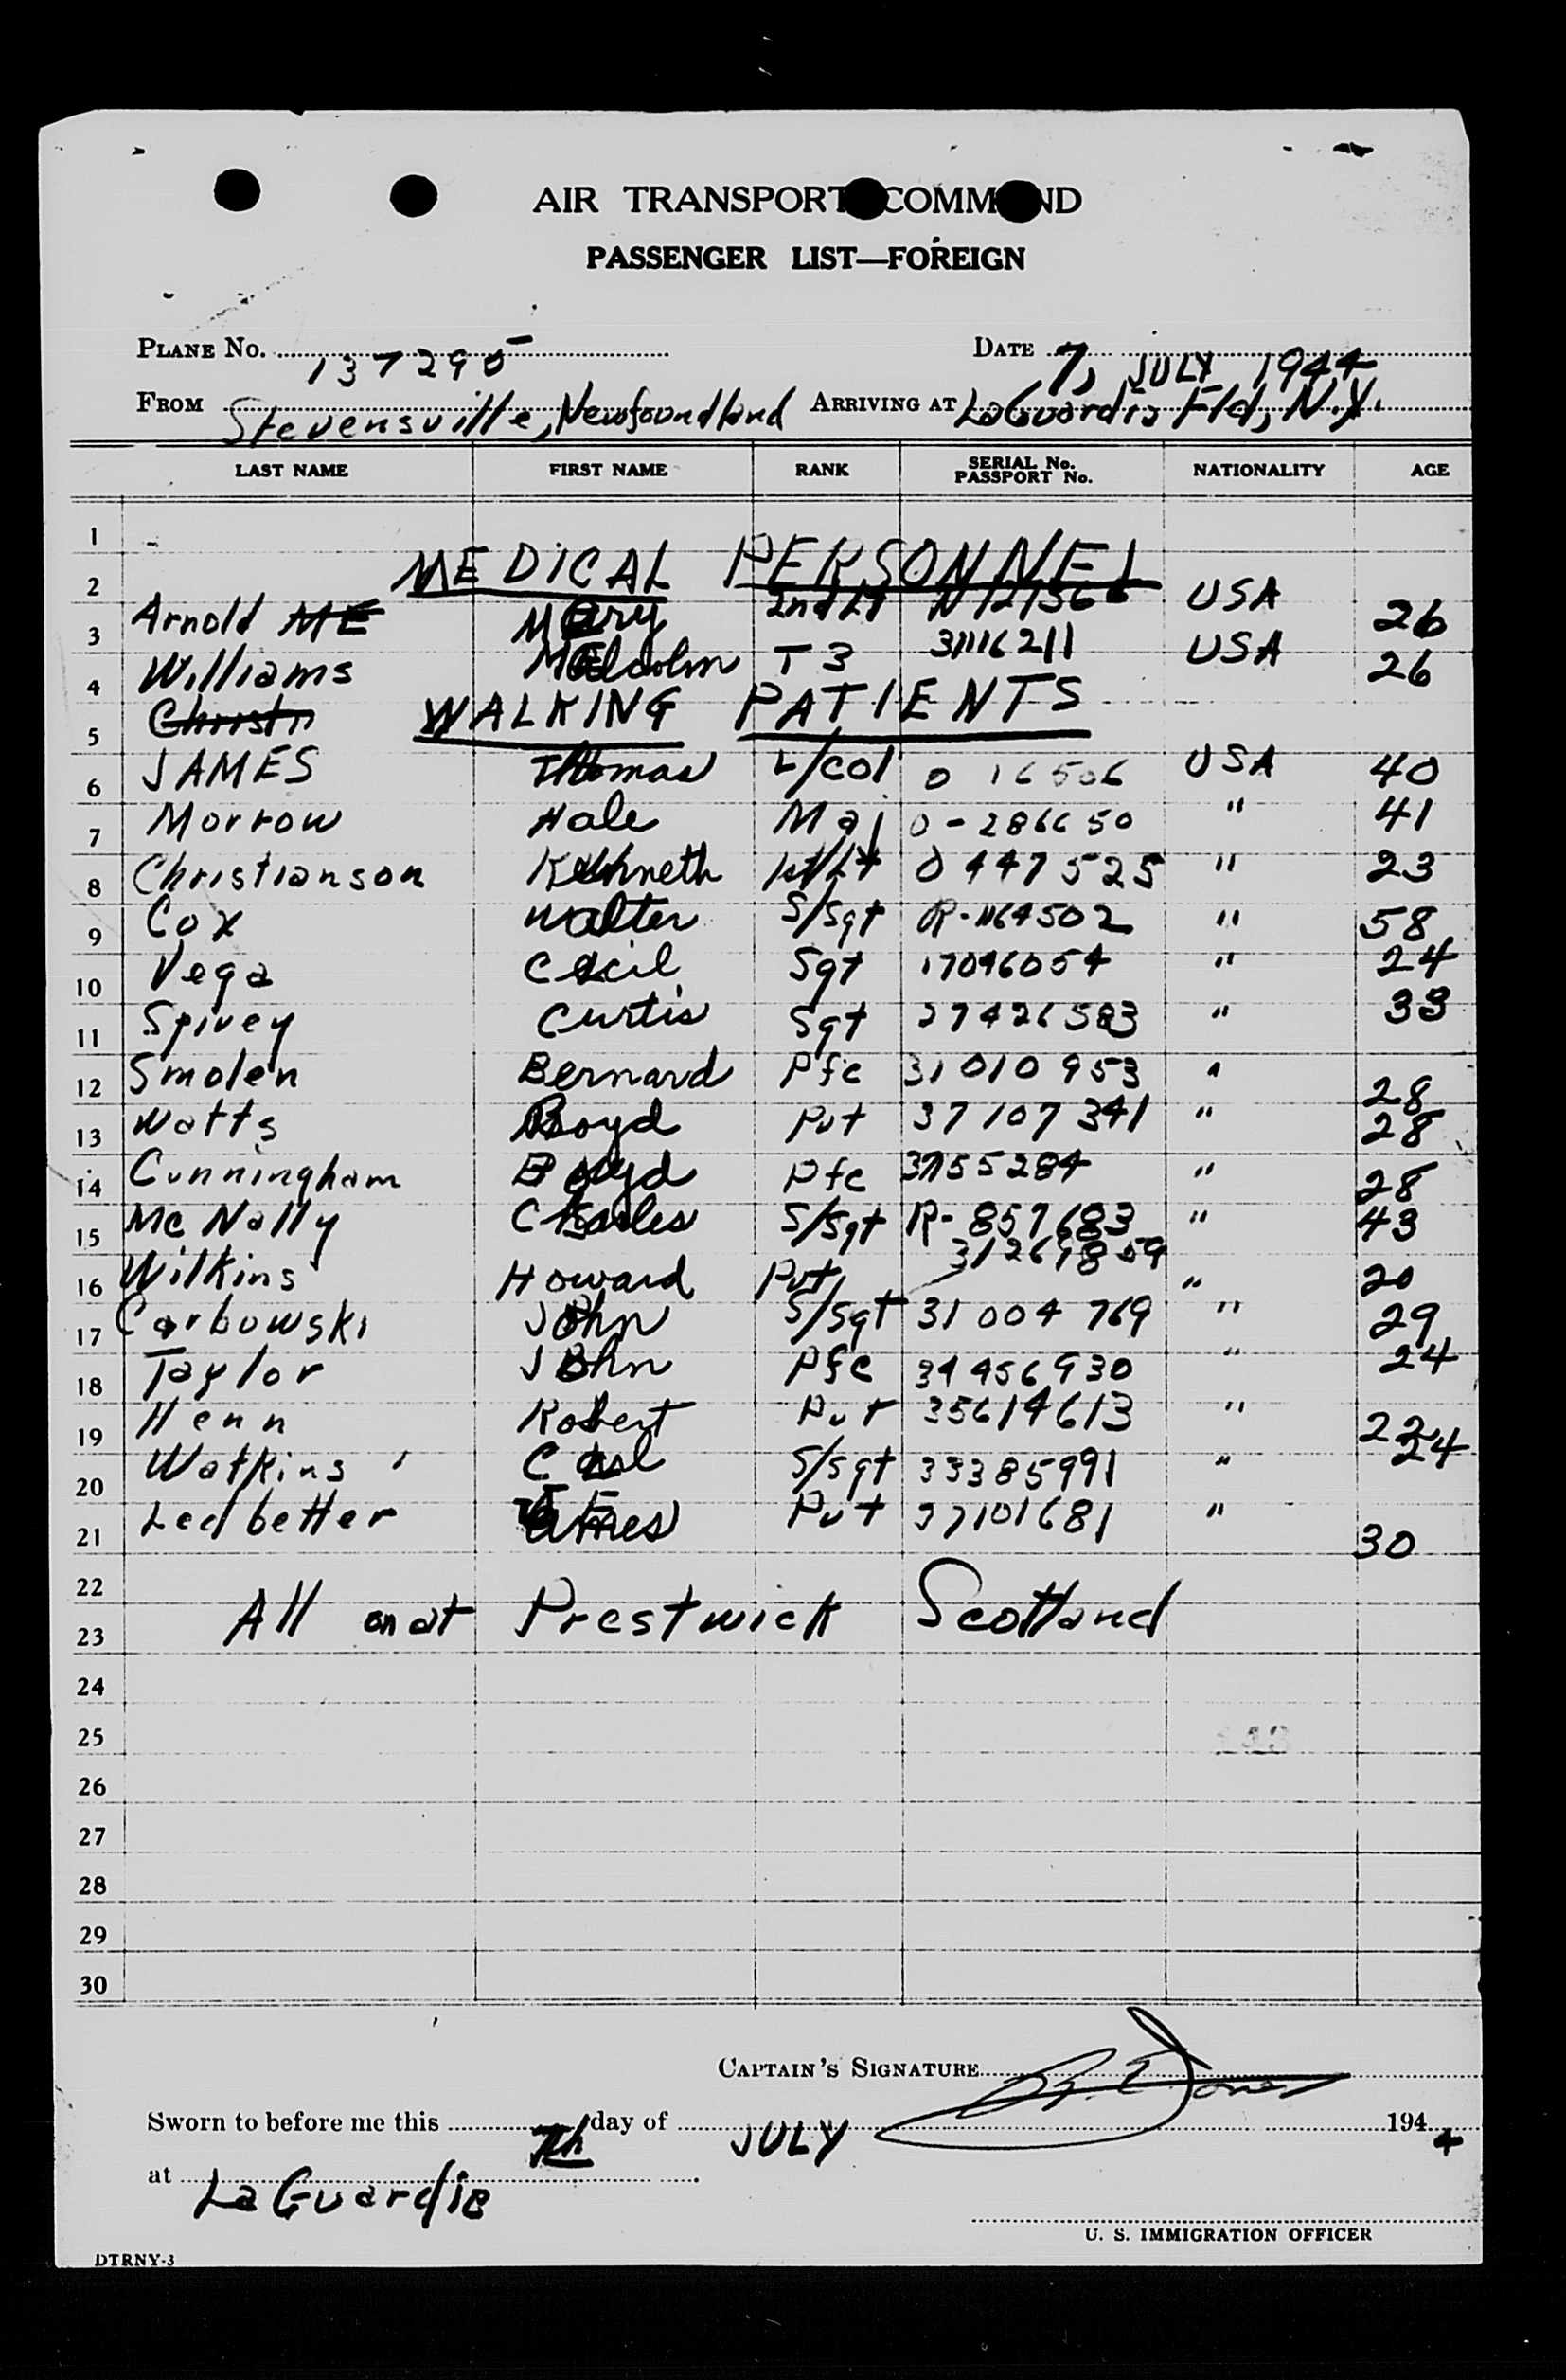 AIR TRANSPORT COMMAND
PASSENGER LIST—FOREIGN
PLANE No. 137295 DATE 7, JULY 1944
FROM Stevensville, Newfoundland ARRIVING AT LaGuardia Fld, N.Y.
LAST NAME FIRST NAME RANK SERIAL No. PASSPORT No. NATIONALITY AGE
1
2 MEDICAL PERSONNEL
3 Arnold ME Mary 2nd Lt USA 26
4 Williams Malcolm T 3 31116211 USA 26
5 Christn WALKING PATIENTS
6 JAMES Thomas L/Col O 16506 USA 40
7 Morrow Hale Maj O-286650 " 41
8 Christianson Kenneth 1st/Lt O 447525 " 23
9 Cox Walter S/Sgt R-1164502 " 58
10 Vega Cecil Sgt 17046054 " 24
11 Spivey Curtis Sgt 37426583 " 33
12 Smolen Bernard Pfc 31010953 " 28
13 Watts Boyd Pvt 37107341 " 28
14 Cunningham Boyd Pfc 37155284 " 28
15 McNally Charles S/Sgt R-857683 " 43
16 Wilkins Howard Pvt 31269859 " 20
17 Garbowski John S/Sgt 31004769 " 29
18 Taylor John Pfc 34456930 " 24
19 Henn Robert Pvt 35614613 " 22
20 Watkins Carl S/Sgt 33385991 " 24
21 Ledbetter Pvt 37101681 " 30
22
23 All on at Prestwick Scotland
24
25
26
27
28
29
30
CAPTAIN'S SIGNATURE Jones
Sworn to before me this 7th day of JULY 1944
at LaGuardia
U. S. IMMIGRATION OFFICER
DTRNY-3